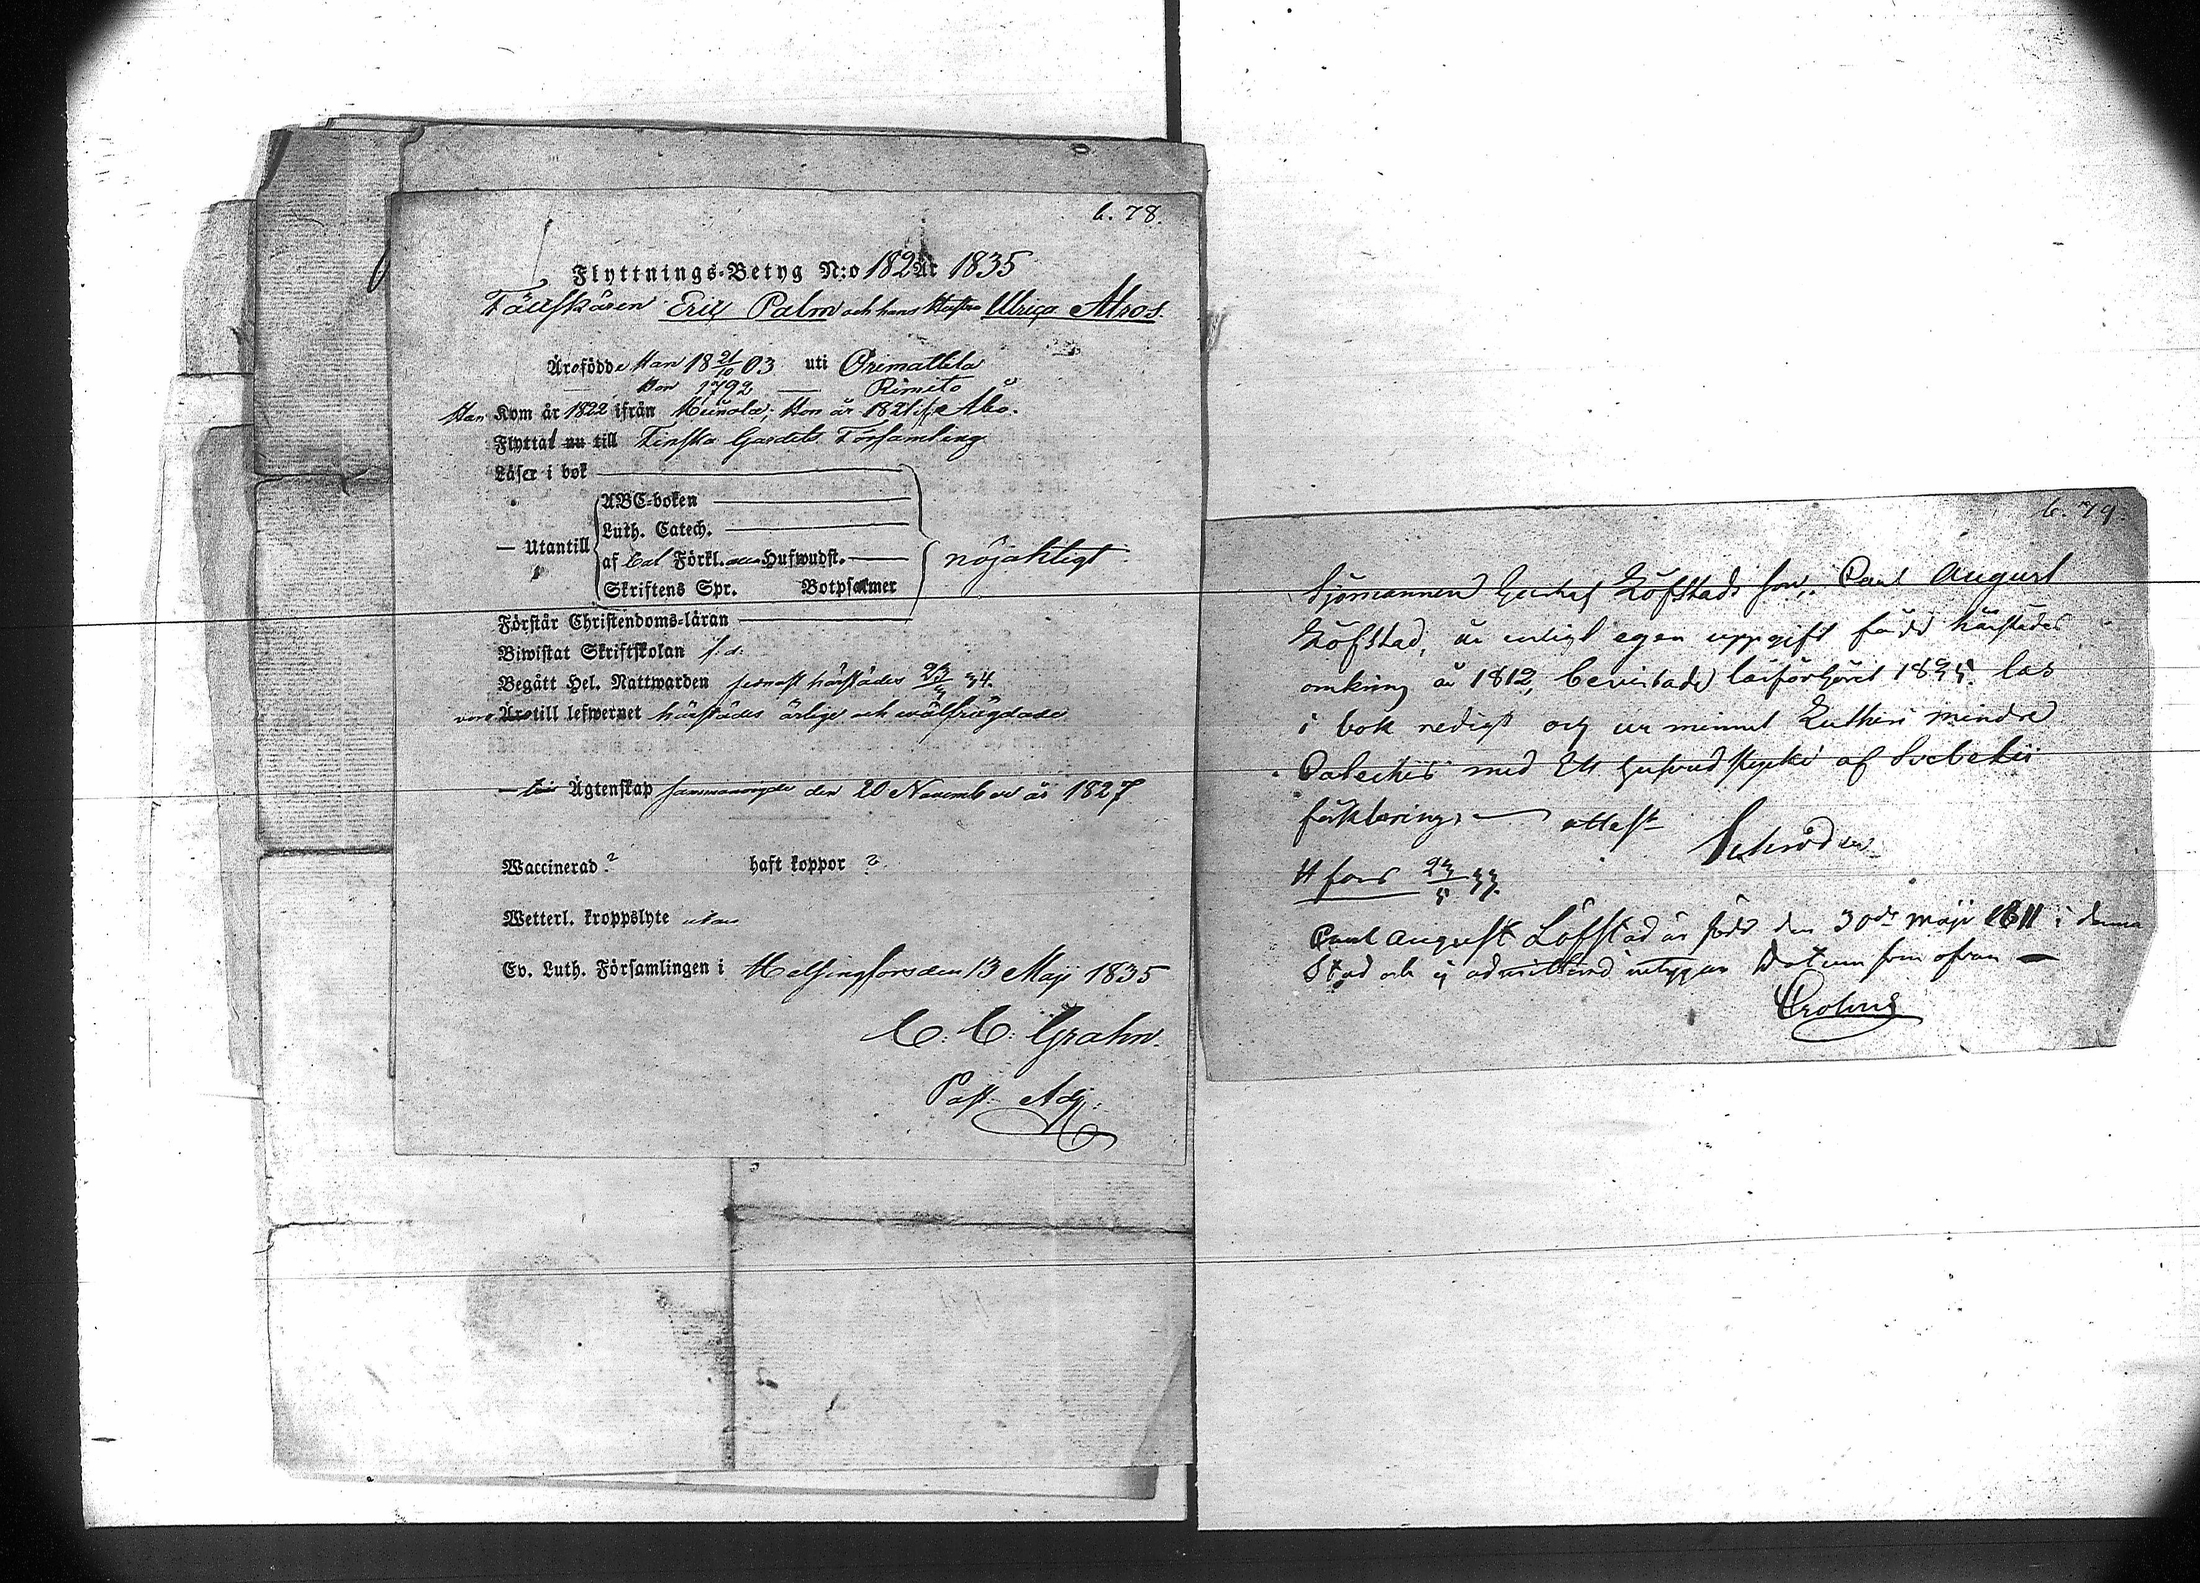 b. 78.
Flyttnings-Betyg N:o 182 År 1835
Fältskären Eric Palm och hans Hustru Ulrica Alros.
Äro födde Han 18 21/10 03 uti Orimattila
— Hon 1792 — Rimito
Han Kom år 1822 ifrån Hon år 1821 ifr. Åbo.
Flyttat nu till Finska Gardets Församling
Läser i bok
ABC-boken
Luth. Catech.
— Utantill
af Förkl. Hufwudst. nöjaktigt
Skriftens Spr. Botpsalmer
Förstår Christendoms-läran
Biwistat Skriftskolan s. d.
Begått Hel. Nattwarden senast härstädes 34.
Äro till lefwernet härstädes ärlige och välfrägdade
Ägtenskap sammanvigde den 20 November år 1827
Waccinerad ? haft koppor ?
Wetterl. kroppslyte utan
Ev. Luth. Församlingen i Helsingfors den 13 Maji 1835
C. C. Grahn.
Past. Adj.
b. 79.
Sjömannen Gustaf Löfstads son, Carl August
Löfstad, är enligt egen uppgift född härstädes
omkring år 1812, bevistade läsförhöret läs
i bok redigt och ur minnet Lutheri mindre
Cateches med Ett hufvudstycke af Svebelii
förklaring, — attest.
Schröder
H:fors
Carl August Löfstad är född den 30de Maji 1811 i denna
Stad och ej admitterad intygar Datum som ofvan —
Crohns